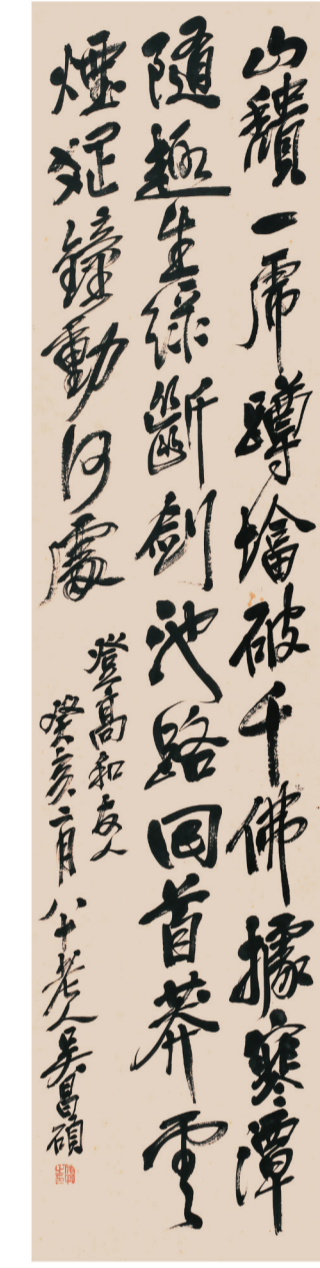 山穨一虎蹲墖破千佛據寒潭
隨趣生緑斷劍池路回首莽雲
煙鐘動何處
登高和友人
癸亥二月八十老人吳昌碩